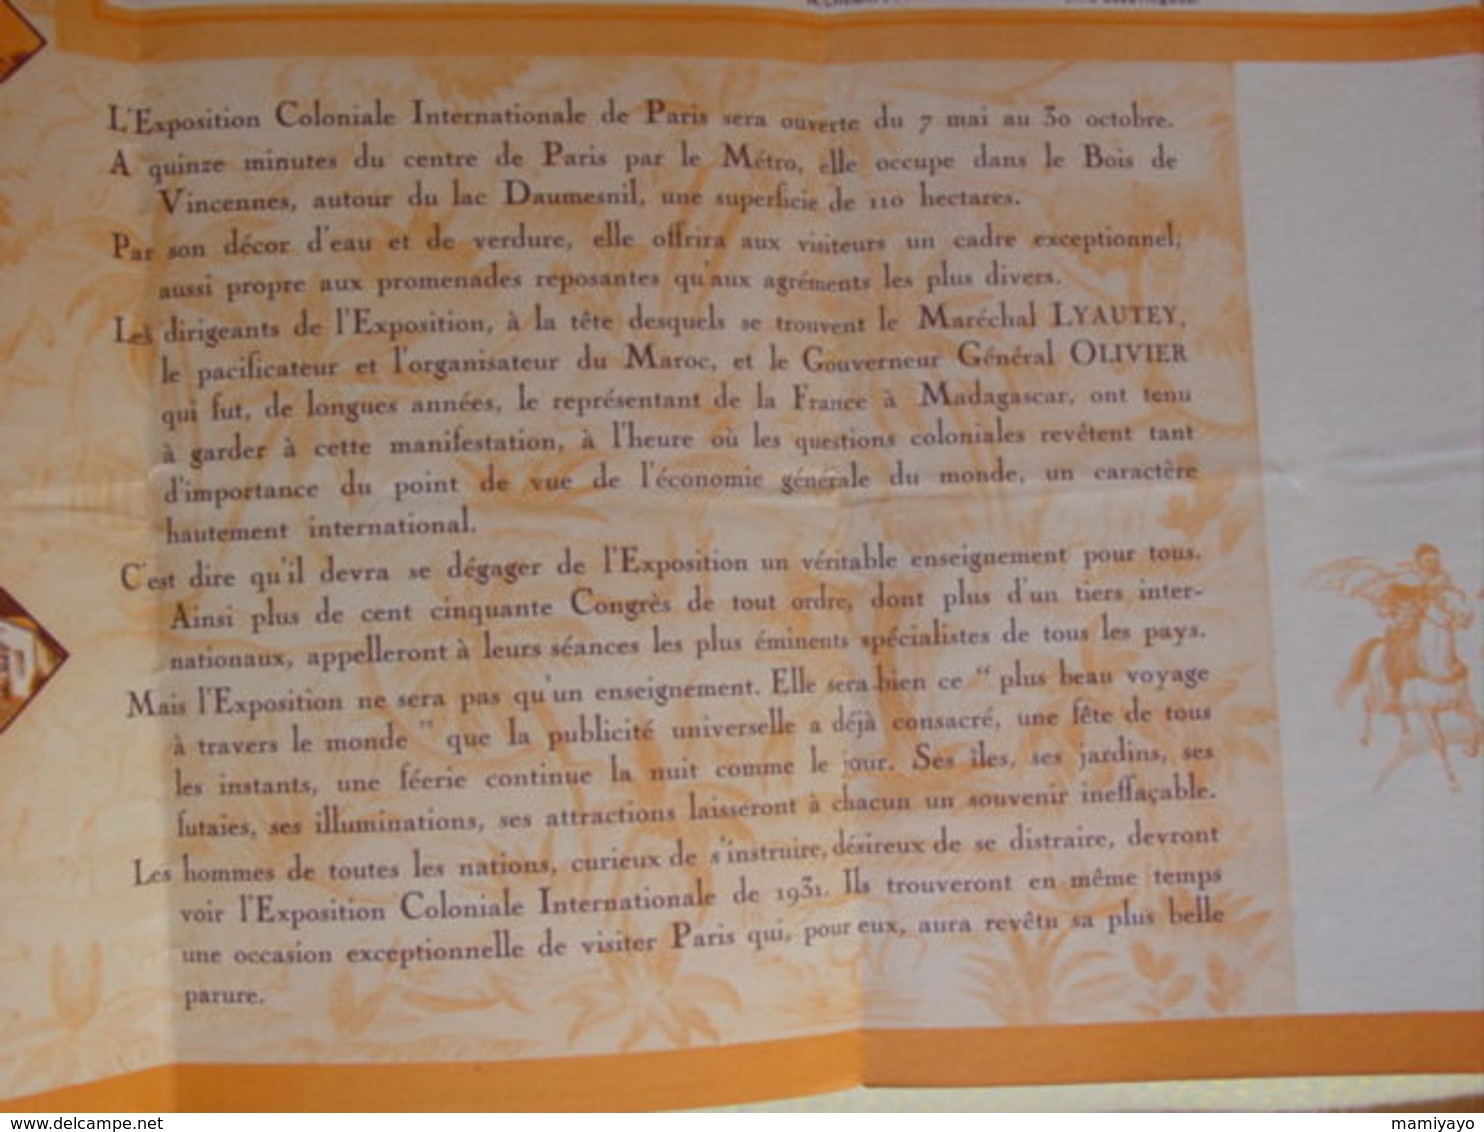 L'Exposition Coloniale Internationale de Paris sera ouverte du 7 mai au 30 octobre.
A quinze minutes du centre de Paris par le Métro, elle occupe dans le Bois de
Vincennes, autour du lac Daumesnil, une superficie de 110 hectares.
Par son décor d'eau et de verdure, elle offrira aux visiteurs un cadre exceptionnel,
aussi propre aux promenades reposantes qu'aux agréments les plus divers.
Les dirigeants de l'Exposition, à la tête desquels se trouvent le Maréchal LYAUTEY,
le pacificateur et l'organisateur du Maroc, et le Gouverneur Général OLIVIER
qui fut, de longues années, le représentant de la France à Madagascar, ont tenu
à garder à cette manifestation, à l'heure où les questions coloniales revêtent tant
d'importance du point de vue de l'économie générale du monde, un caractère
hautement international.
C'est dire qu'il devra se dégager de l'Exposition un véritable enseignement pour tous.
Ainsi plus de cent cinquante Congrès de tout ordre, dont plus d'un tiers inter-
nationaux, appelleront à leurs séances les plus éminents spécialistes de tous les pays.
Mais l'Exposition ne sera pas qu'un enseignement. Elle sera bien ce " plus beau voyage
à travers le monde " que la publicité universelle a déjà consacré, une fête de tous
les instants, une féerie continue la nuit comme le jour. Ses îles, ses jardins, ses
futaies, ses illuminations, ses attractions laisseront à chacun un souvenir ineffaçable.
Les hommes de toutes les nations, curieux de s'instruire, désireux de se distraire, devront
voir l'Exposition Coloniale Internationale de 1931. Ils trouveront en même temps
une occasion exceptionnelle de visiter Paris qui, pour eux, aura revêtu sa plus belle
parure.
www.delcampe.net
mamiyayo